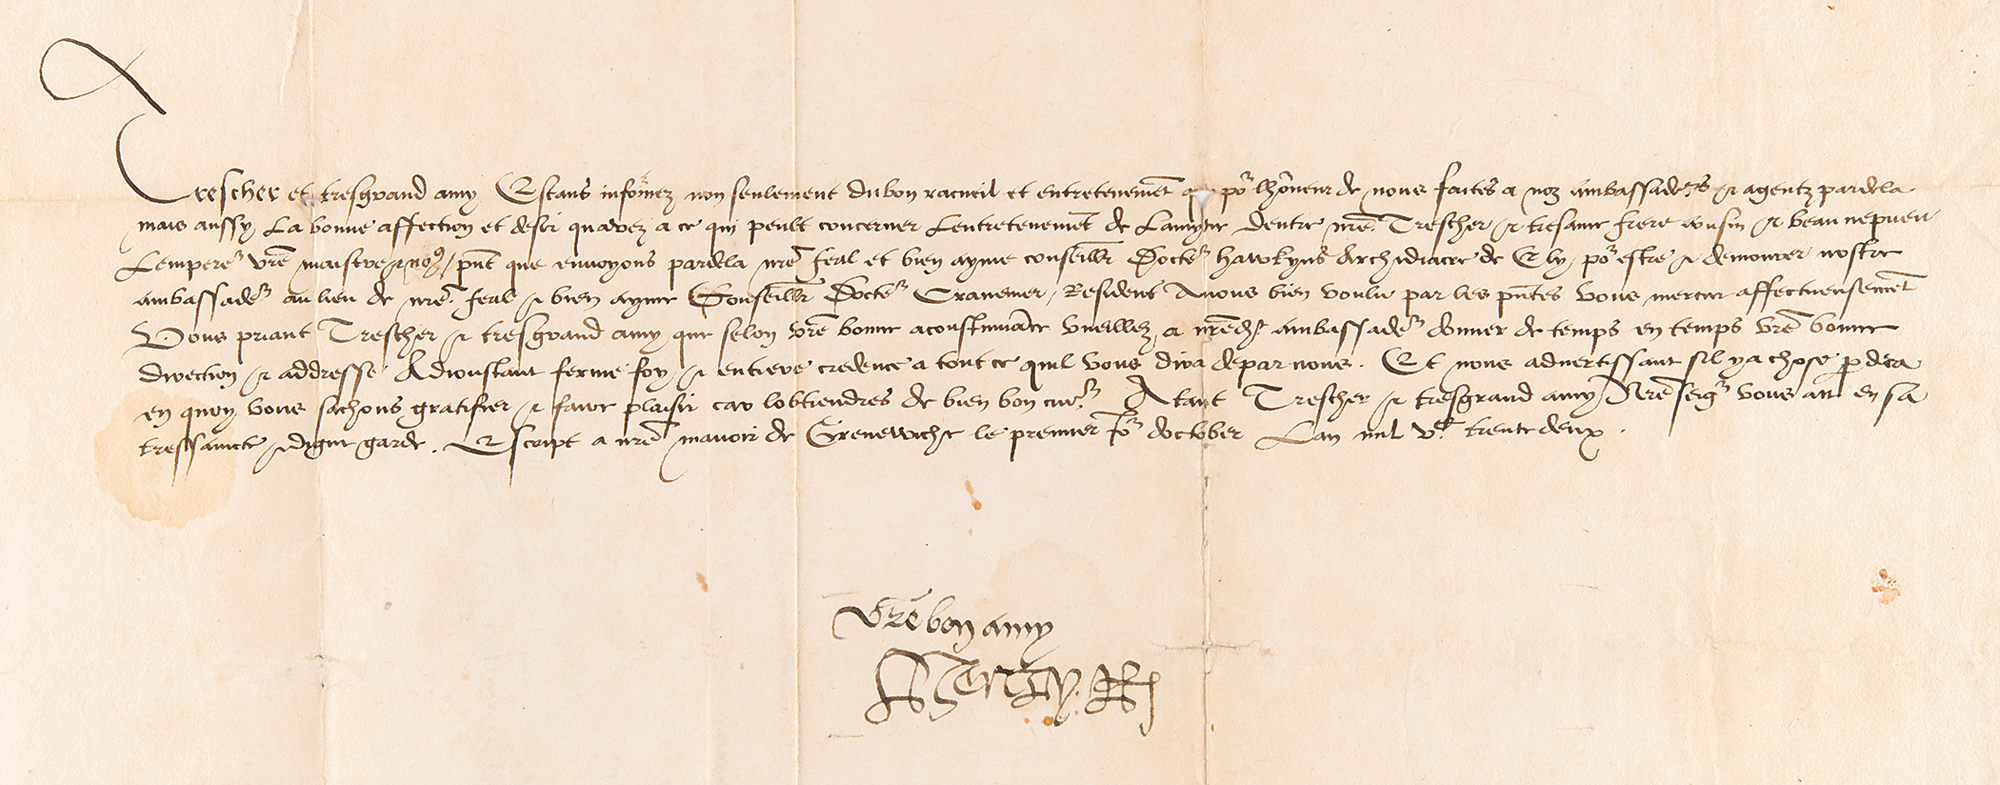 Trescher et tresgrand amy, Estans infőmez non seulement du bon racueil et entretenemēt que põr lhõneur de nous faites a noz ambassadeᵣs & agentz pardela
mais aussy, La bonne affection et desir quavez a ce qui peult concerner Lentretenement de Lamytie Dentre nr̄e Trescher & tresame frere cousin & beau nepveu
Lempereʳ vr̄e maistre & noꝰ / pn̄t que envoyons pardela nr̄e feal et bien ayme conseillr̄ Docteʳ hawkyns Archidiacre de Ely, põr estre & demourer nostre
ambassadeʳ au lieu de nr̄e feal & bien ayme Conseillr̄ Docteʳ Cranemer, Resident Avons bien voulu par les pn̄tes Vous mercier affectueusemēt
Vous priant Trescher & tresgrand amy, que selon vr̄e bonne acoustumāce vueillez, a nr̄edᵗ ambassadeʳ donner de temps en temps vr̄e bonne
direction & addresse Adioustant ferme foy, & entiere credence a tout ce quil vous dira depar nous. Et nous advertissant sil ya chose ꝑ deca
en quoy vous sachons gratifier & faire plaisir car lobtiendres de bien bon cueʳ. Atant Trescher & tresgrand amy Nr̄e seigʳ vous ait en sa
tressaincte & digne garde. Escript a nr̄e manoir de Grenewiche le premier Jõr doctober Lan mil vᶜ trente deux.
Vr̄e bon amy
Henry R